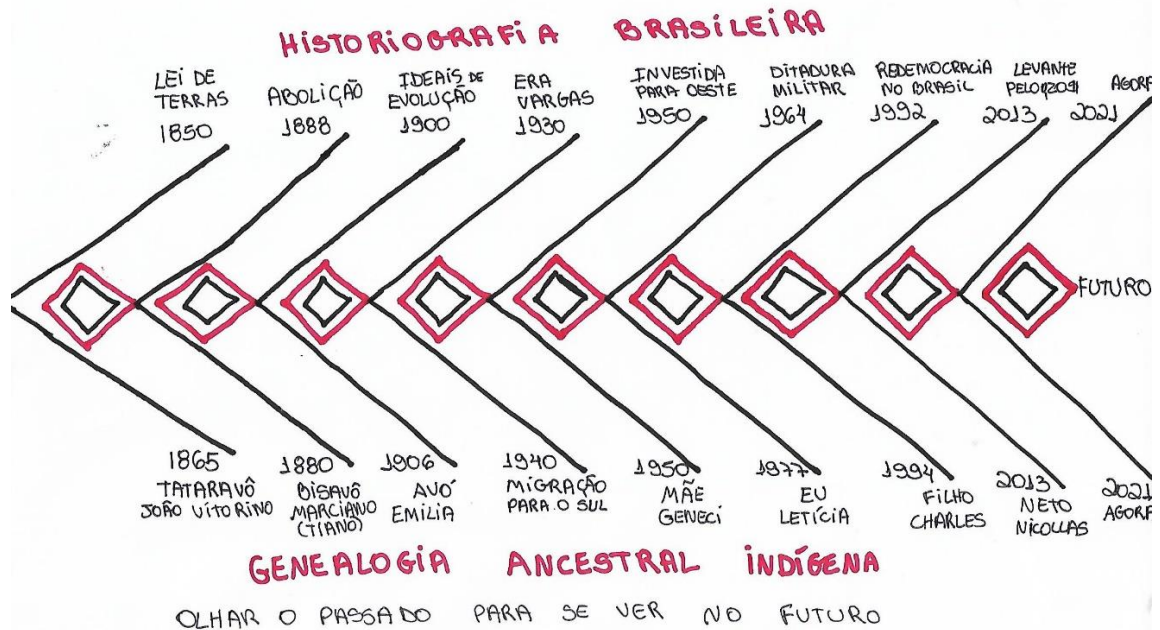 HISTORIOGRAFIA BRASILEIRA
LEI DE
TERRAS
1850
ABOLIÇÃO
1888
IDEAIS DE
EVOLUÇÃO
1900
ERA
VARGAS
1930
INVESTIDA
PARA OESTE
1950
DITADURA
MILITAR
1964
REDEMOCRACIA
NO BRASIL
1992
LEVANTE
2013
AGORA
2021
FUTURO
1865
TATARAVÔ
JOÃO VITORINO
1880
BISAVÔ
MARCIANO
(TIANO)
1906
AVÓ
EMILIA
1940
MIGRAÇÃO
PARA O SUL
1950
MÃE
GENECI
1977
EU
LETÍCIA
1994
FILHO
CHARLES
2013
NETO
NICOLLAS
2021
AGORA
GENEALOGIA ANCESTRAL INDÍGENA
OLHAR O PASSADO PARA SE VER NO FUTURO